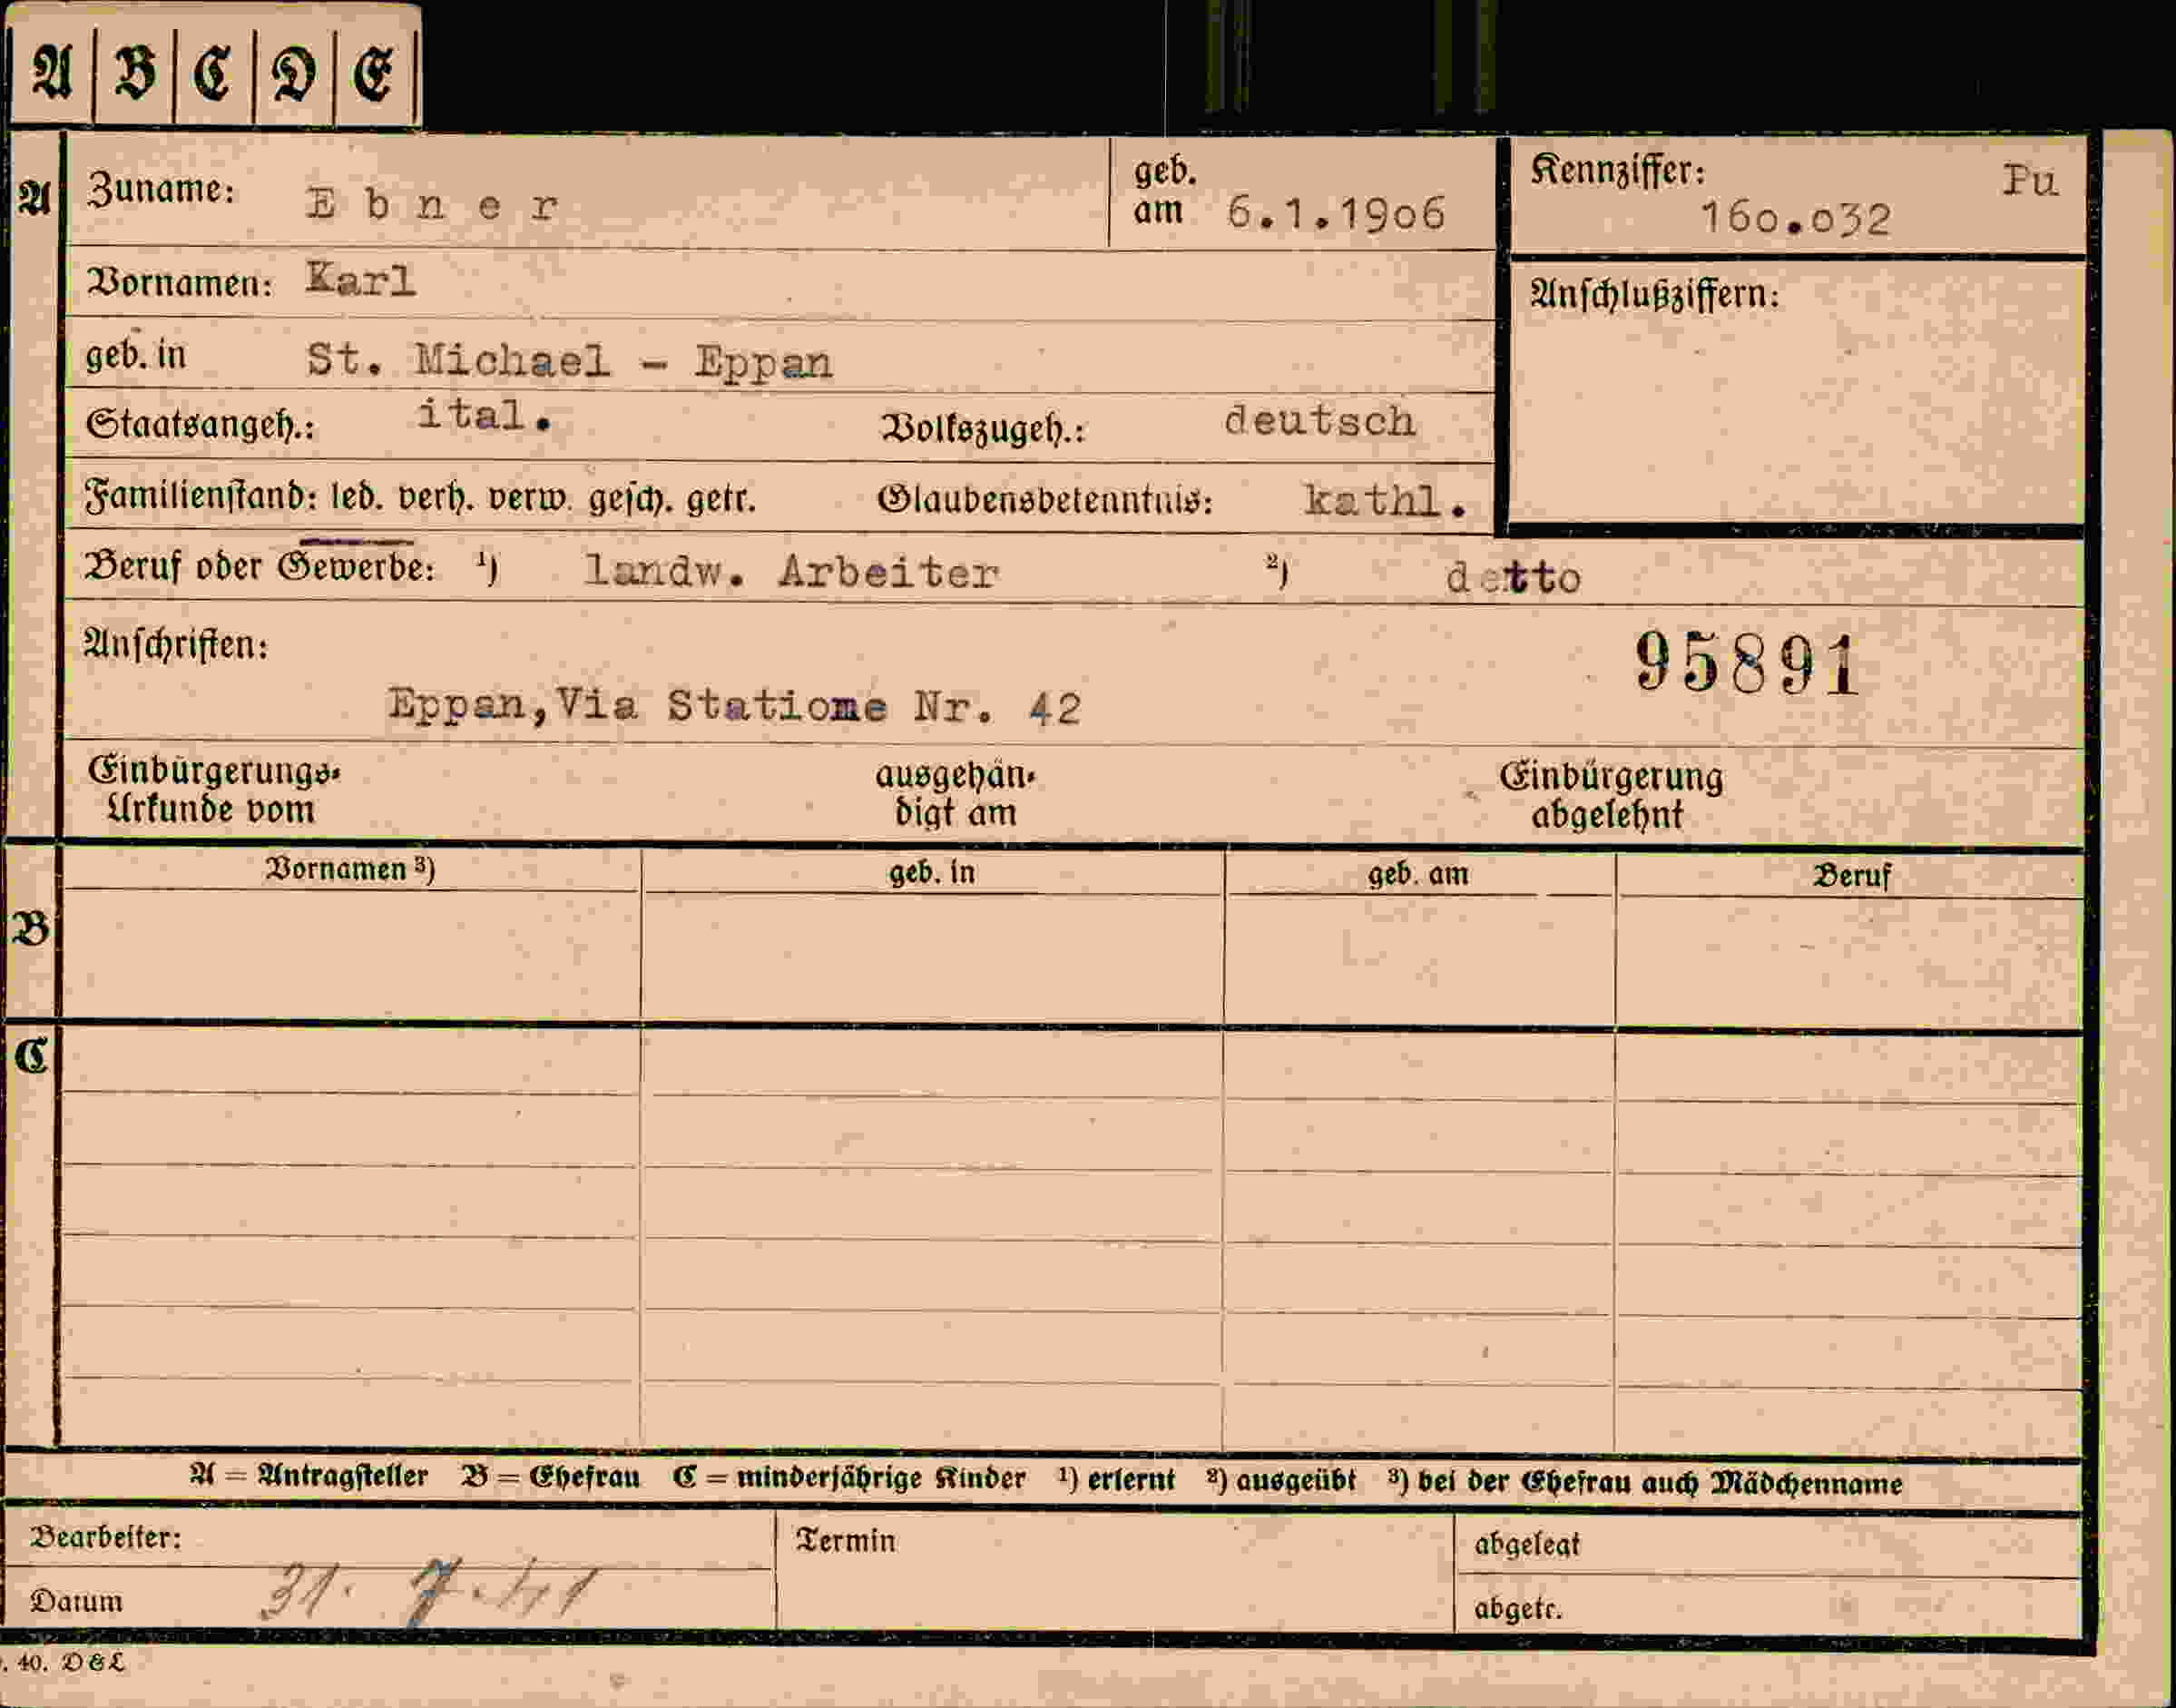 A B C D E
A Zuname: Ebner geb. am 6.1.1906 Kennziffer: 160.032 Pu
Vornamen: Karl Anschlußziffern:
geb. in St. Michael - Eppan
Staatsangeh.: ital. Volkszugeh.: deutsch
Familienstand: led. verh. verw. gesch. getr. Glaubensbekenntnis: kathl.
Beruf oder Gewerbe: ¹) landw. Arbeiter ²) detto
Anschriften: 95891
Eppan, Via Statione Nr. 42
Einbürgerungs- ausgehän- Einbürgerung
Urkunde vom digt am abgelehnt
Vornamen ³) geb. in geb. am Beruf
B
C
A = Antragsteller B = Ehefrau C = minderjährige Kinder ¹) erlernt ²) ausgeübt ³) bei der Ehefrau auch Mädchenname
Bearbeiter: Termin abgelegt
Datum 31. 7. 41 abgetr.
. 40. D & L